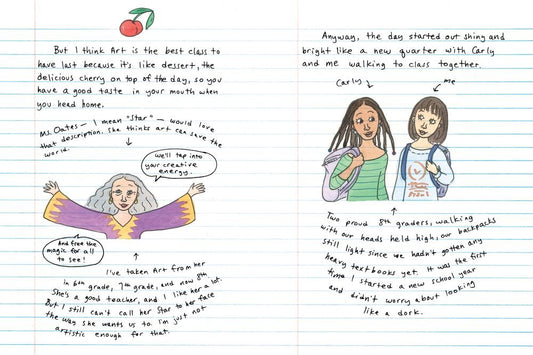 But I think Art is the best class to
have last because it's like dessert, the
delicious cherry on top of the day, so you
have a good taste in your mouth when
you head home.
Ms. Oates – I mean "Star" – would love
that description. She thinks art can save the
world.
We'll tap into
your creative
energy.
And free the
magic for all
to see!
I've taken Art from her
in 6th grade, 7th grade, and now 8th.
She's a good teacher, and I like her a lot.
But I still can't call her Star to her face
the way she wants us to. I'm just not
artistic enough for that.
Anyway, the day started out shiny and
bright like a new quarter with Carly
and me walking to class together.
Carly
me
Two proud 8th graders, walking
with our heads held high, our backpacks
still light since we hadn't gotten any
heavy textbooks yet. It was the first
time I started a new school year
and didn't worry about looking
like a dork.